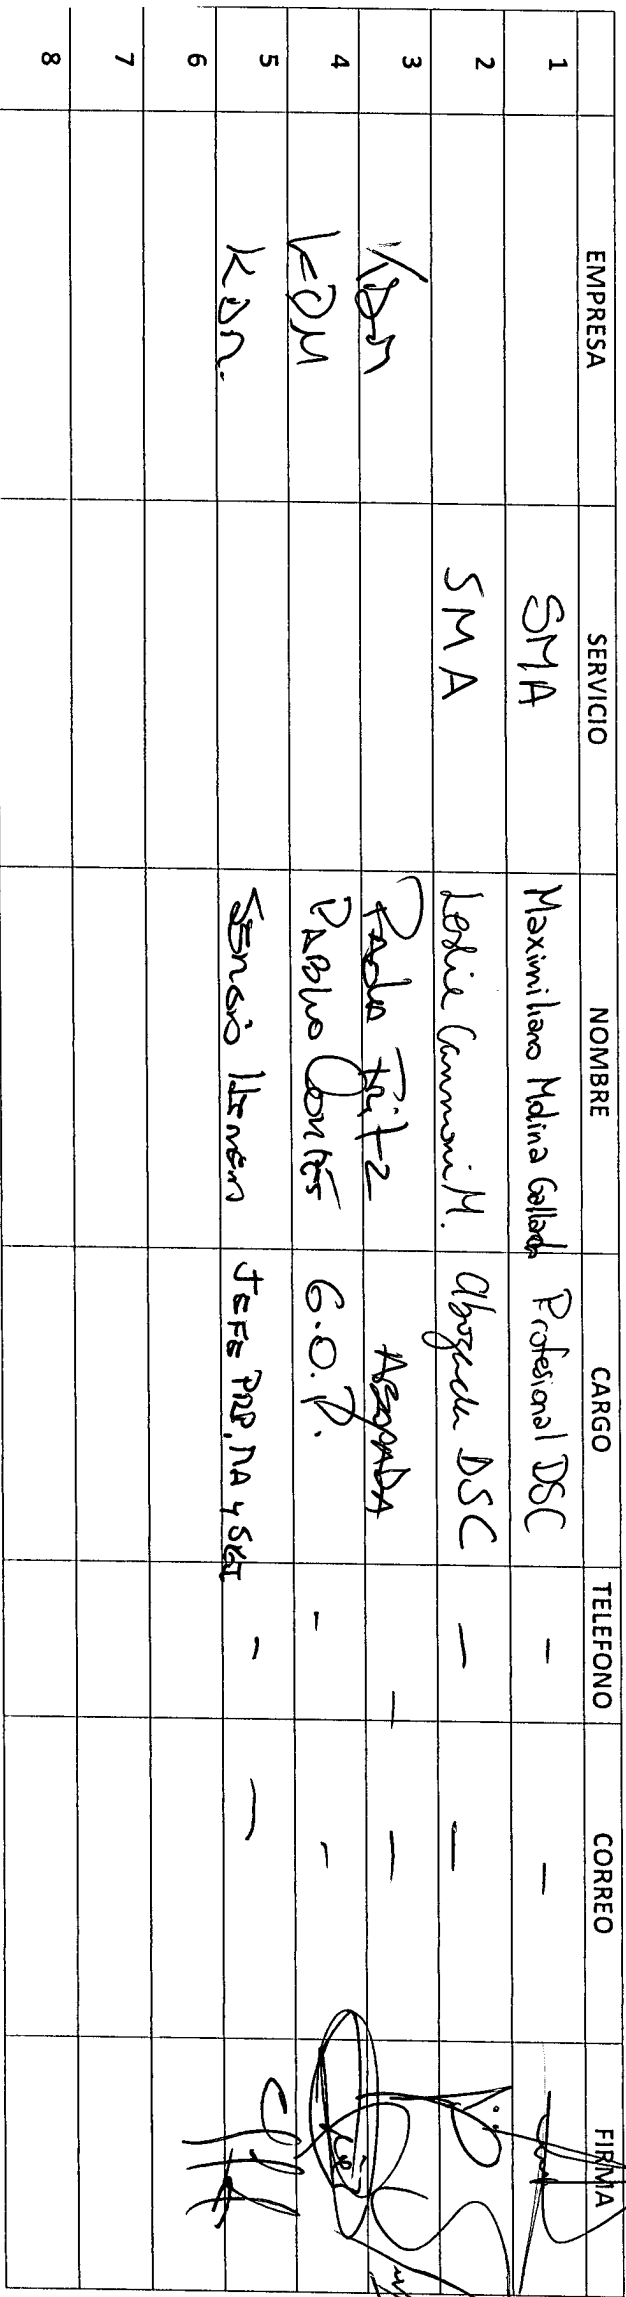 EMPRESA SERVICIO NOMBRE CARGO TELEFONO CORREO FIRMA
1 SMA Maximiliano Molina Gallardo Profesional DSC - -
2 SMA Leslie Cannoni M. abogada DSC - -
3 KDM Paola Fritz ABOGADA - -
4 KDM PABLO Cortés G.O.P. - -
5 KDM. SERGIO JEFE PRP, MA y SGI - -
6
7
8